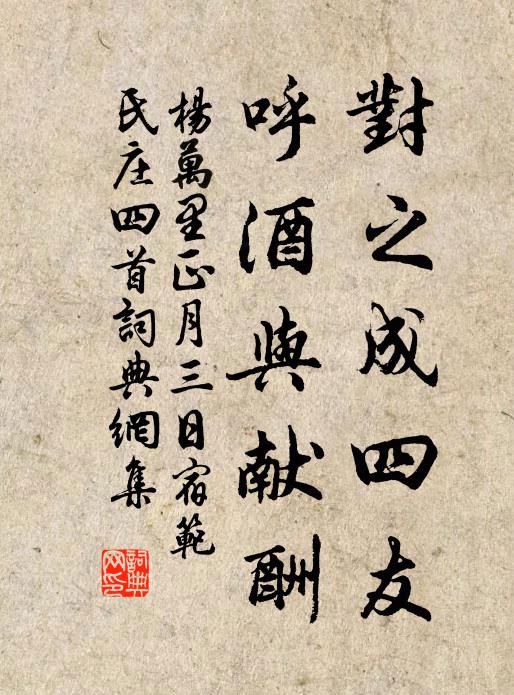 對之成四友
呼酒與献酬
楊萬里正月三日宿範
氏庄四首詞典網集
詞典网印